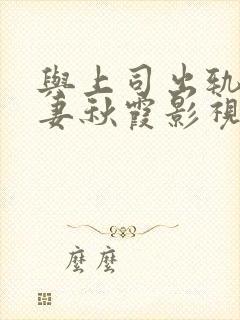 與上司出軌
妻秋霞影視
麼麼